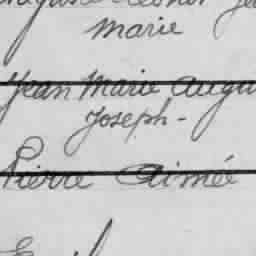 marie
Jean Marie Augu
Joseph -
Pierre Aimée